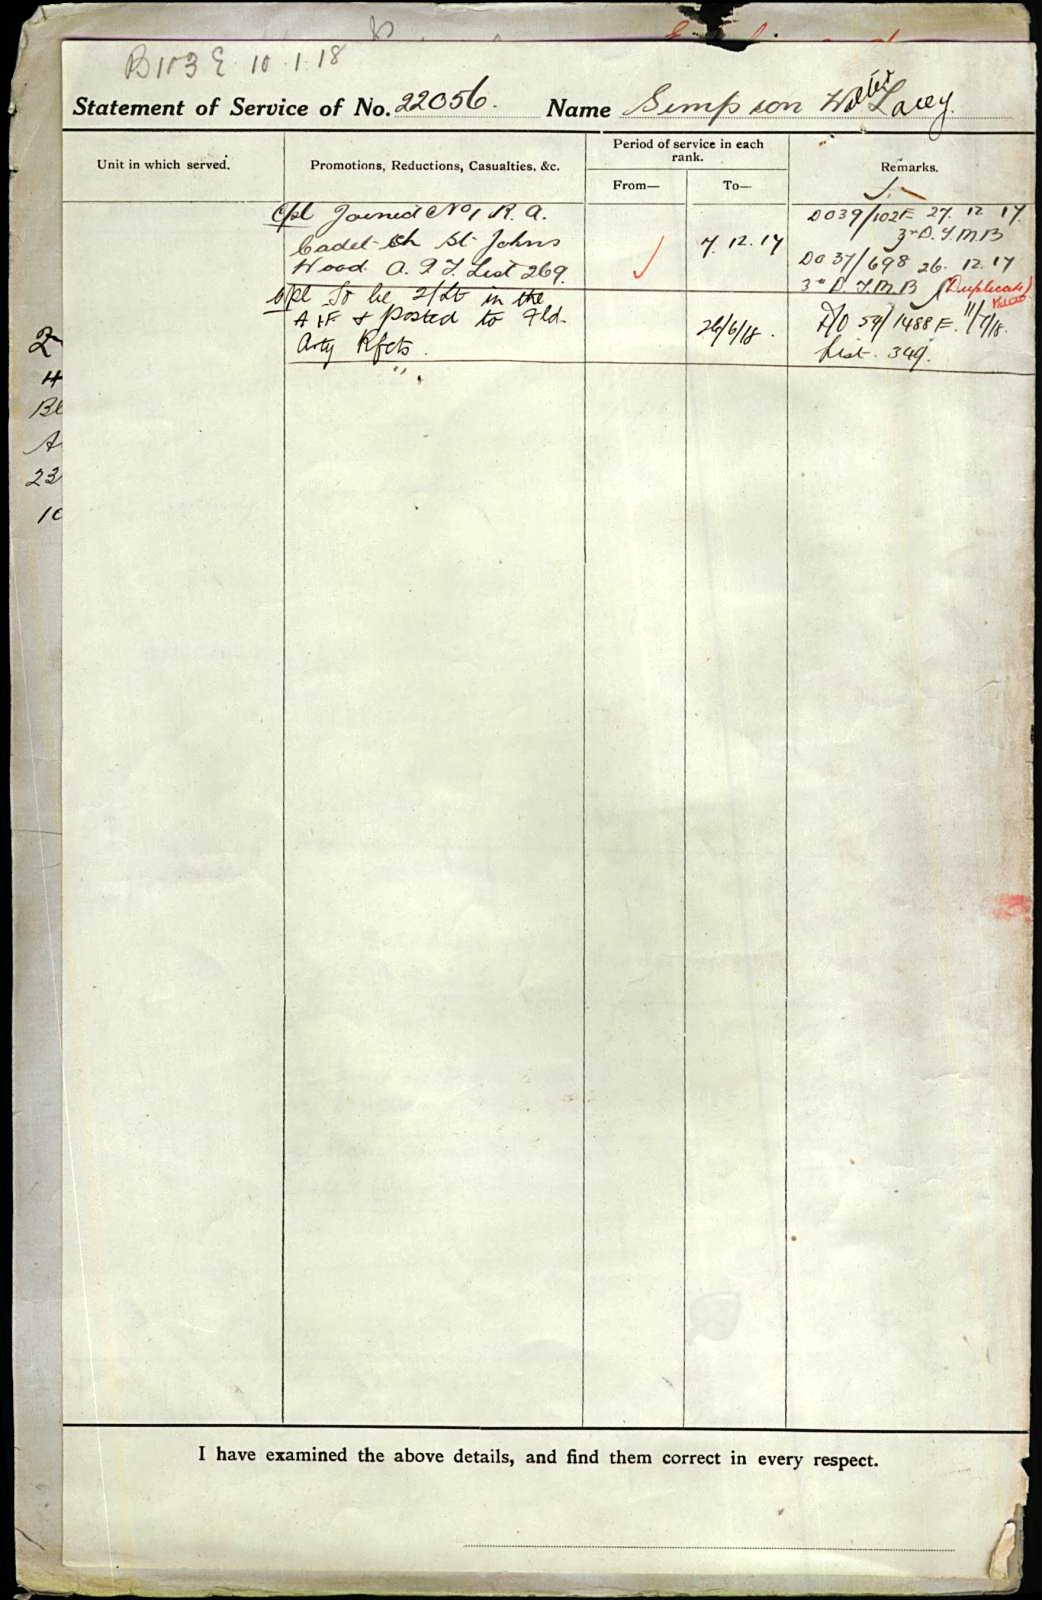 B103 E 10.1.18
Statement of Service of No. 22056. Name Simpson Walter Lacey.
Unit in which served. Promotions, Reductions, Casualties, &c. Period of service in each rank. From— To— Remarks.
Cpl Joined No 1 R. A. DO39/102E 27.12.17
Cadet Sch St Johns 7.12.17 3rd D.T.M.B
Wood. A.I.F. List 269. DO 37/698 26.12.17
3rd D.T.M.B (Duplicate)
Cpl To be 2/Lt in the
AIF & posted to Fld. 26/6/18. D/O 59/1488E. 11/7/18.
Arty Rfcts. List. 349.
2
4
Bl
A
23
10
I have examined the above details, and find them correct in every respect.